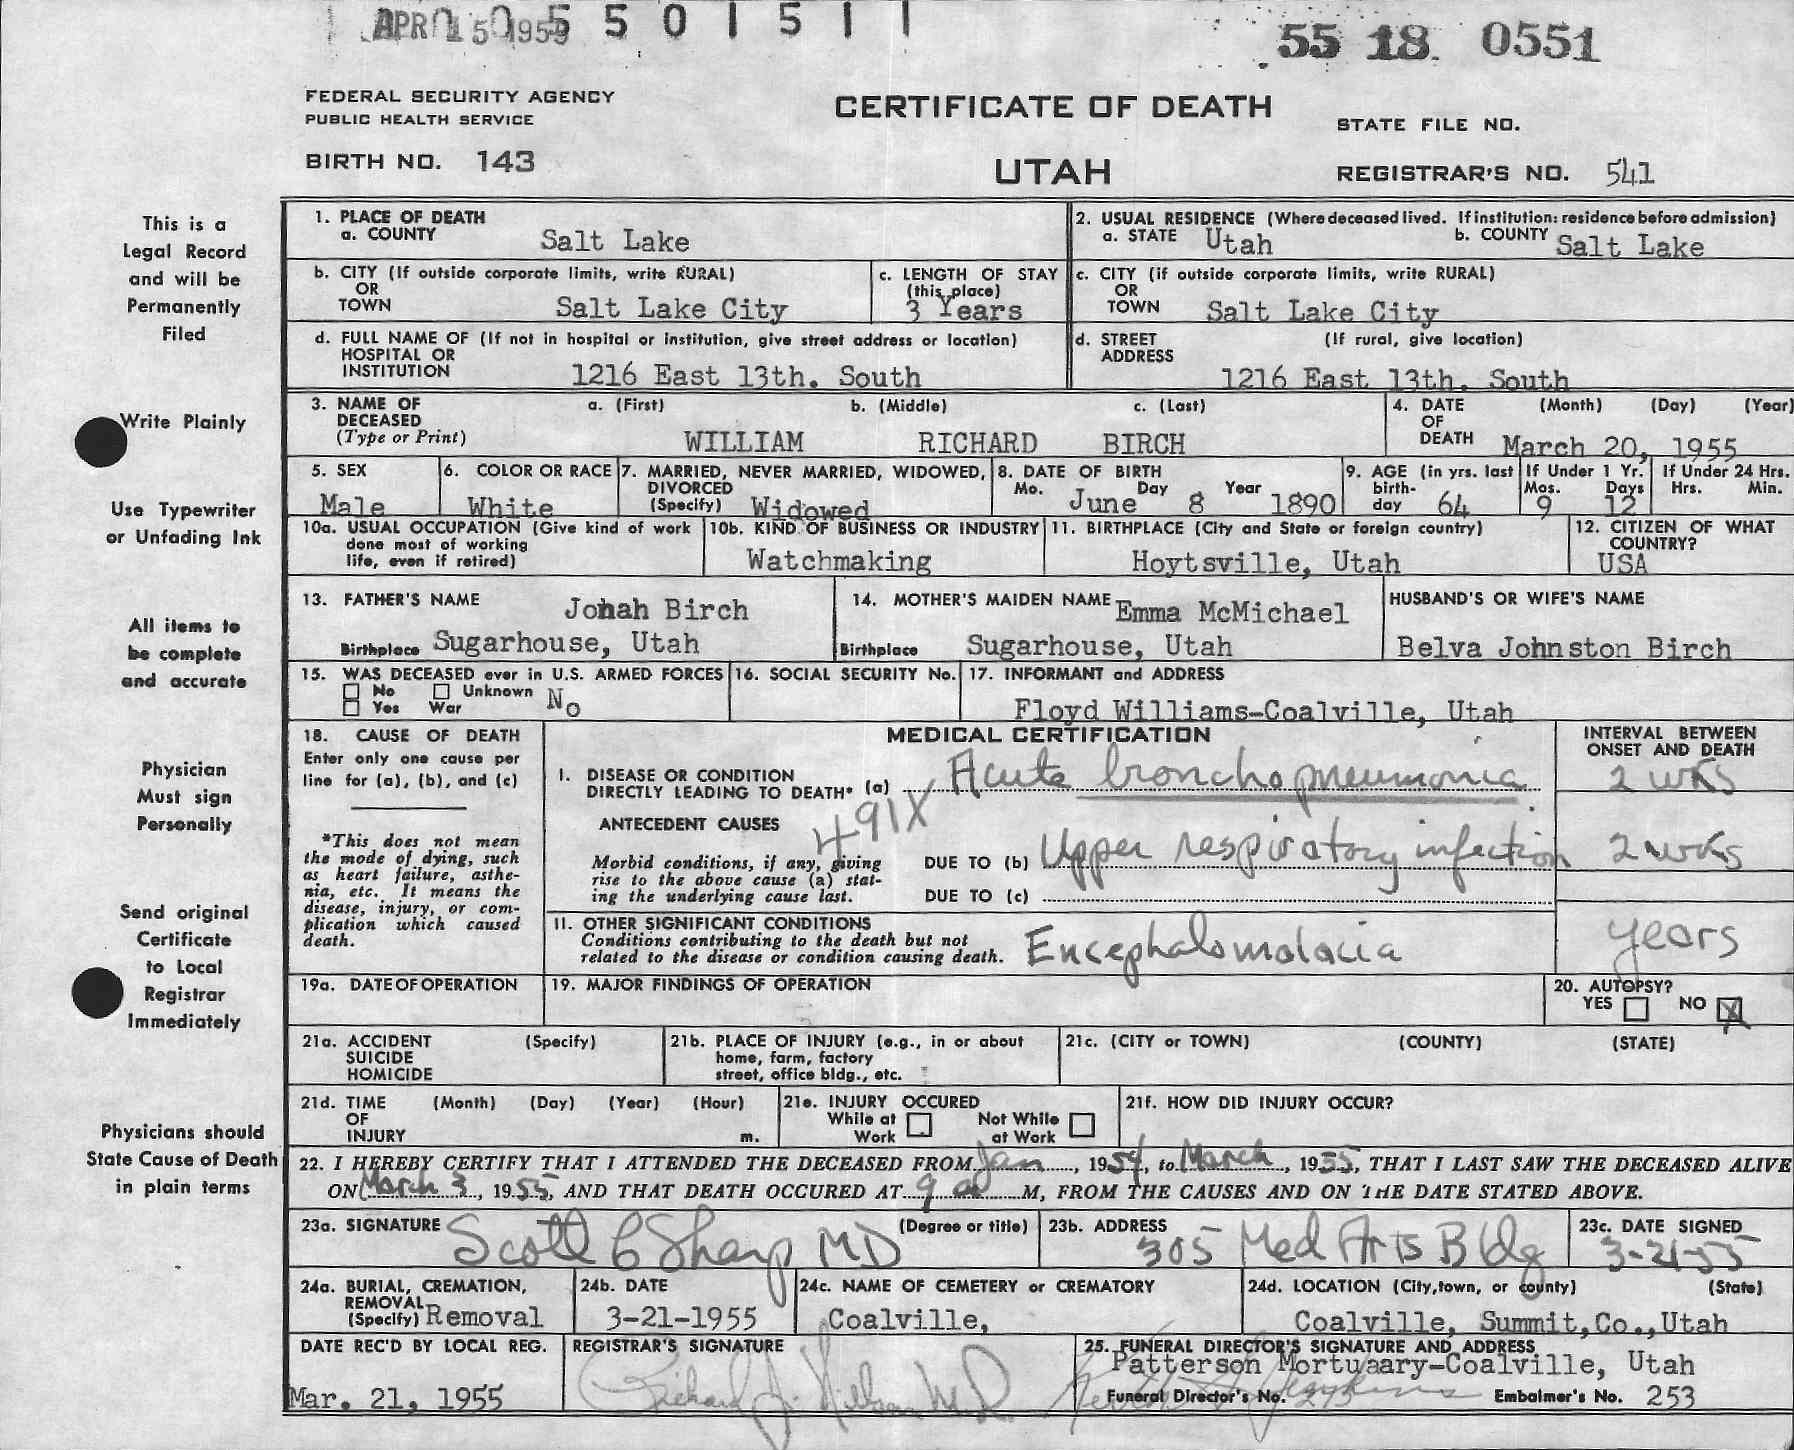 APR 15 1955 5 5 0 1 5 1 1
55 18 0551
FEDERAL SECURITY AGENCY
PUBLIC HEALTH SERVICE
CERTIFICATE OF DEATH
STATE FILE NO.
BIRTH NO. 143
UTAH
REGISTRAR'S NO. 541
This is a
Legal Record
and will be
Permanently
Filed
Write Plainly
Use Typewriter
or Unfading Ink
All items to
be complete
and accurate
Physician
Must sign
Personally
Send original
Certificate
to Local
Registrar
Immediately
Physicians should
State Cause of Death
in plain terms
1. PLACE OF DEATH
a. COUNTY Salt Lake
2. USUAL RESIDENCE (Where deceased lived. If institution: residence before admission)
a. STATE Utah b. COUNTY Salt Lake
b. CITY (If outside corporate limits, write RURAL)
OR
TOWN Salt Lake City
c. LENGTH OF STAY
(this place)
3 Years
c. CITY (if outside corporate limits, write RURAL)
OR
TOWN Salt Lake City
d. FULL NAME OF (If not in hospital or institution, give street address or location)
HOSPITAL OR
INSTITUTION 1216 East 13th. South
d. STREET (If rural, give location)
ADDRESS
1216 East 13th. South
3. NAME OF a. (First) b. (Middle) c. (Last)
DECEASED
(Type or Print) WILLIAM RICHARD BIRCH
4. DATE (Month) (Day) (Year)
OF
DEATH March 20, 1955
5. SEX
Male
6. COLOR OR RACE
White
7. MARRIED, NEVER MARRIED, WIDOWED,
DIVORCED
(Specify) Widowed
8. DATE OF BIRTH
Mo. Day Year
June 8 1890
9. AGE (in yrs. last
birth-
day 64
If Under 1 Yr.
Mos. Days
9 12
If Under 24 Hrs.
Hrs. Min.
10a. USUAL OCCUPATION (Give kind of work
done most of working
life, even if retired)
10b. KIND OF BUSINESS OR INDUSTRY
Watchmaking
11. BIRTHPLACE (City and State or foreign country)
Hoytsville, Utah
12. CITIZEN OF WHAT
COUNTRY?
USA
13. FATHER'S NAME Jonah Birch
Birthplace Sugarhouse, Utah
14. MOTHER'S MAIDEN NAME Emma McMichael
Birthplace Sugarhouse, Utah
HUSBAND'S OR WIFE'S NAME
Belva Johnston Birch
15. WAS DECEASED ever in U.S. ARMED FORCES
No Unknown No
Yes War
16. SOCIAL SECURITY No.
17. INFORMANT and ADDRESS
Floyd Williams-Coalville, Utah
18. CAUSE OF DEATH
Enter only one cause per
line for (a), (b), and (c)
*This does not mean
the mode of dying, such
as heart failure, asthe-
nia, etc. It means the
disease, injury, or com-
plication which caused
death.
MEDICAL CERTIFICATION
INTERVAL BETWEEN
ONSET AND DEATH
I. DISEASE OR CONDITION
DIRECTLY LEADING TO DEATH* (a) Acute bronchopneumonia 2 wks
491X
ANTECEDENT CAUSES
Morbid conditions, if any, giving
rise to the above cause (a) stat-
ing the underlying cause last.
DUE TO (b) Upper respiratory infection 2 wks
DUE TO (c)
II. OTHER SIGNIFICANT CONDITIONS
Conditions contributing to the death but not
related to the disease or condition causing death.
Encephalomalacia years
19a. DATE OF OPERATION
19. MAJOR FINDINGS OF OPERATION
20. AUTOPSY?
YES NO X
21a. ACCIDENT (Specify)
SUICIDE
HOMICIDE
21b. PLACE OF INJURY (e.g., in or about
home, farm, factory
street, office bldg., etc.
21c. (CITY or TOWN) (COUNTY) (STATE)
21d. TIME (Month) (Day) (Year) (Hour)
OF
INJURY m.
21e. INJURY OCCURED
While at Not While
Work at Work
21f. HOW DID INJURY OCCUR?
22. I HEREBY CERTIFY THAT I ATTENDED THE DECEASED FROM Jan, 1954, to March, 1955, THAT I LAST SAW THE DECEASED ALIVE
ON March 3, 1955, AND THAT DEATH OCCURED AT 9 a M, FROM THE CAUSES AND ON THE DATE STATED ABOVE.
23a. SIGNATURE (Degree or title)
Scott C Sharp MD
23b. ADDRESS
305 Med Arts Bldg
23c. DATE SIGNED
3-21-55
24a. BURIAL, CREMATION,
REMOVAL
(Specify) Removal
24b. DATE
3-21-1955
24c. NAME OF CEMETERY or CREMATORY
Coalville,
24d. LOCATION (City, town, or county) (State)
Coalville, Summit,Co.,Utah
DATE REC'D BY LOCAL REG.
Mar. 21, 1955
REGISTRAR'S SIGNATURE
Richard J. Nilson M.D.
25. FUNERAL DIRECTOR'S SIGNATURE AND ADDRESS
Patterson Mortuaary-Coalville, Utah
Funeral Director's No. 273 Embalmer's No. 253